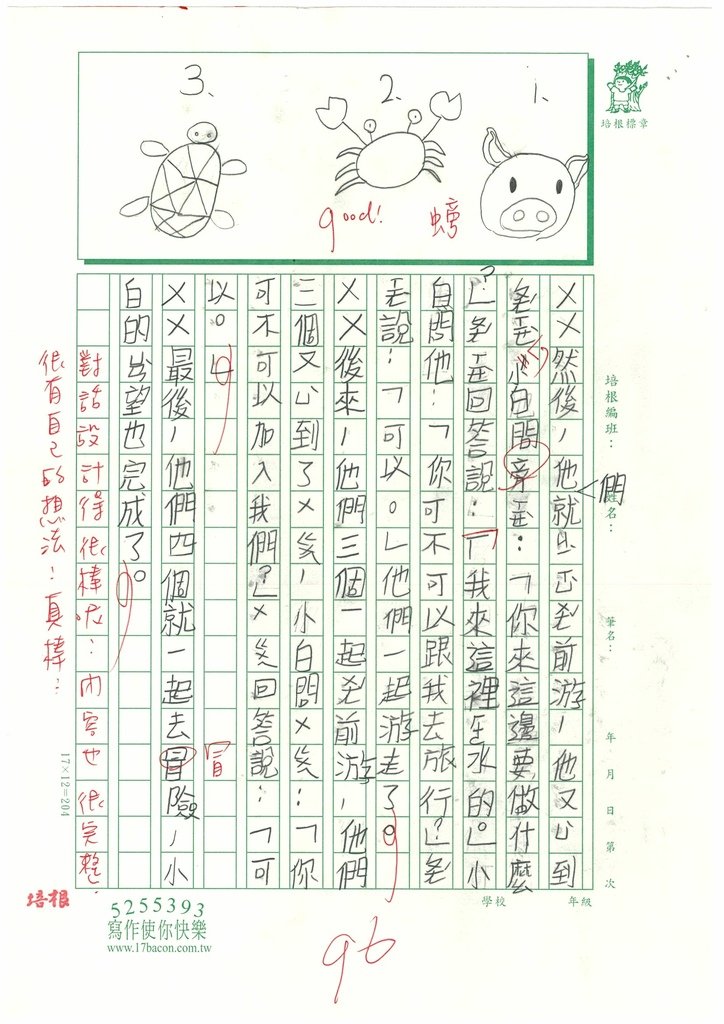 3、
2、
1、
good!
螃
培根標章
培根編班：
姓名：
筆名：
年 月 日 第 次
學校
年級
××然後，他就前游，他又到
們
小白問：「你來這邊要做什麼
？」回答說：「我來這裡水的。」小
白問他：「你可不可以跟我去旅行？」
說：「可以。」他們一起游走了。
××後來，他們三個一起前游，他們
三個又到了，小白問：「你
可不可以加入我們？」回答說：「可
以。」
冒
××最後，他們四個就一起去冒險，小
白的望也完成了。
對話設計得很棒哦！內容也很完整！
很有自己的想法！真棒！
17×12=204
培根
5255393
寫作使你快樂
www.17bacon.com.tw
96